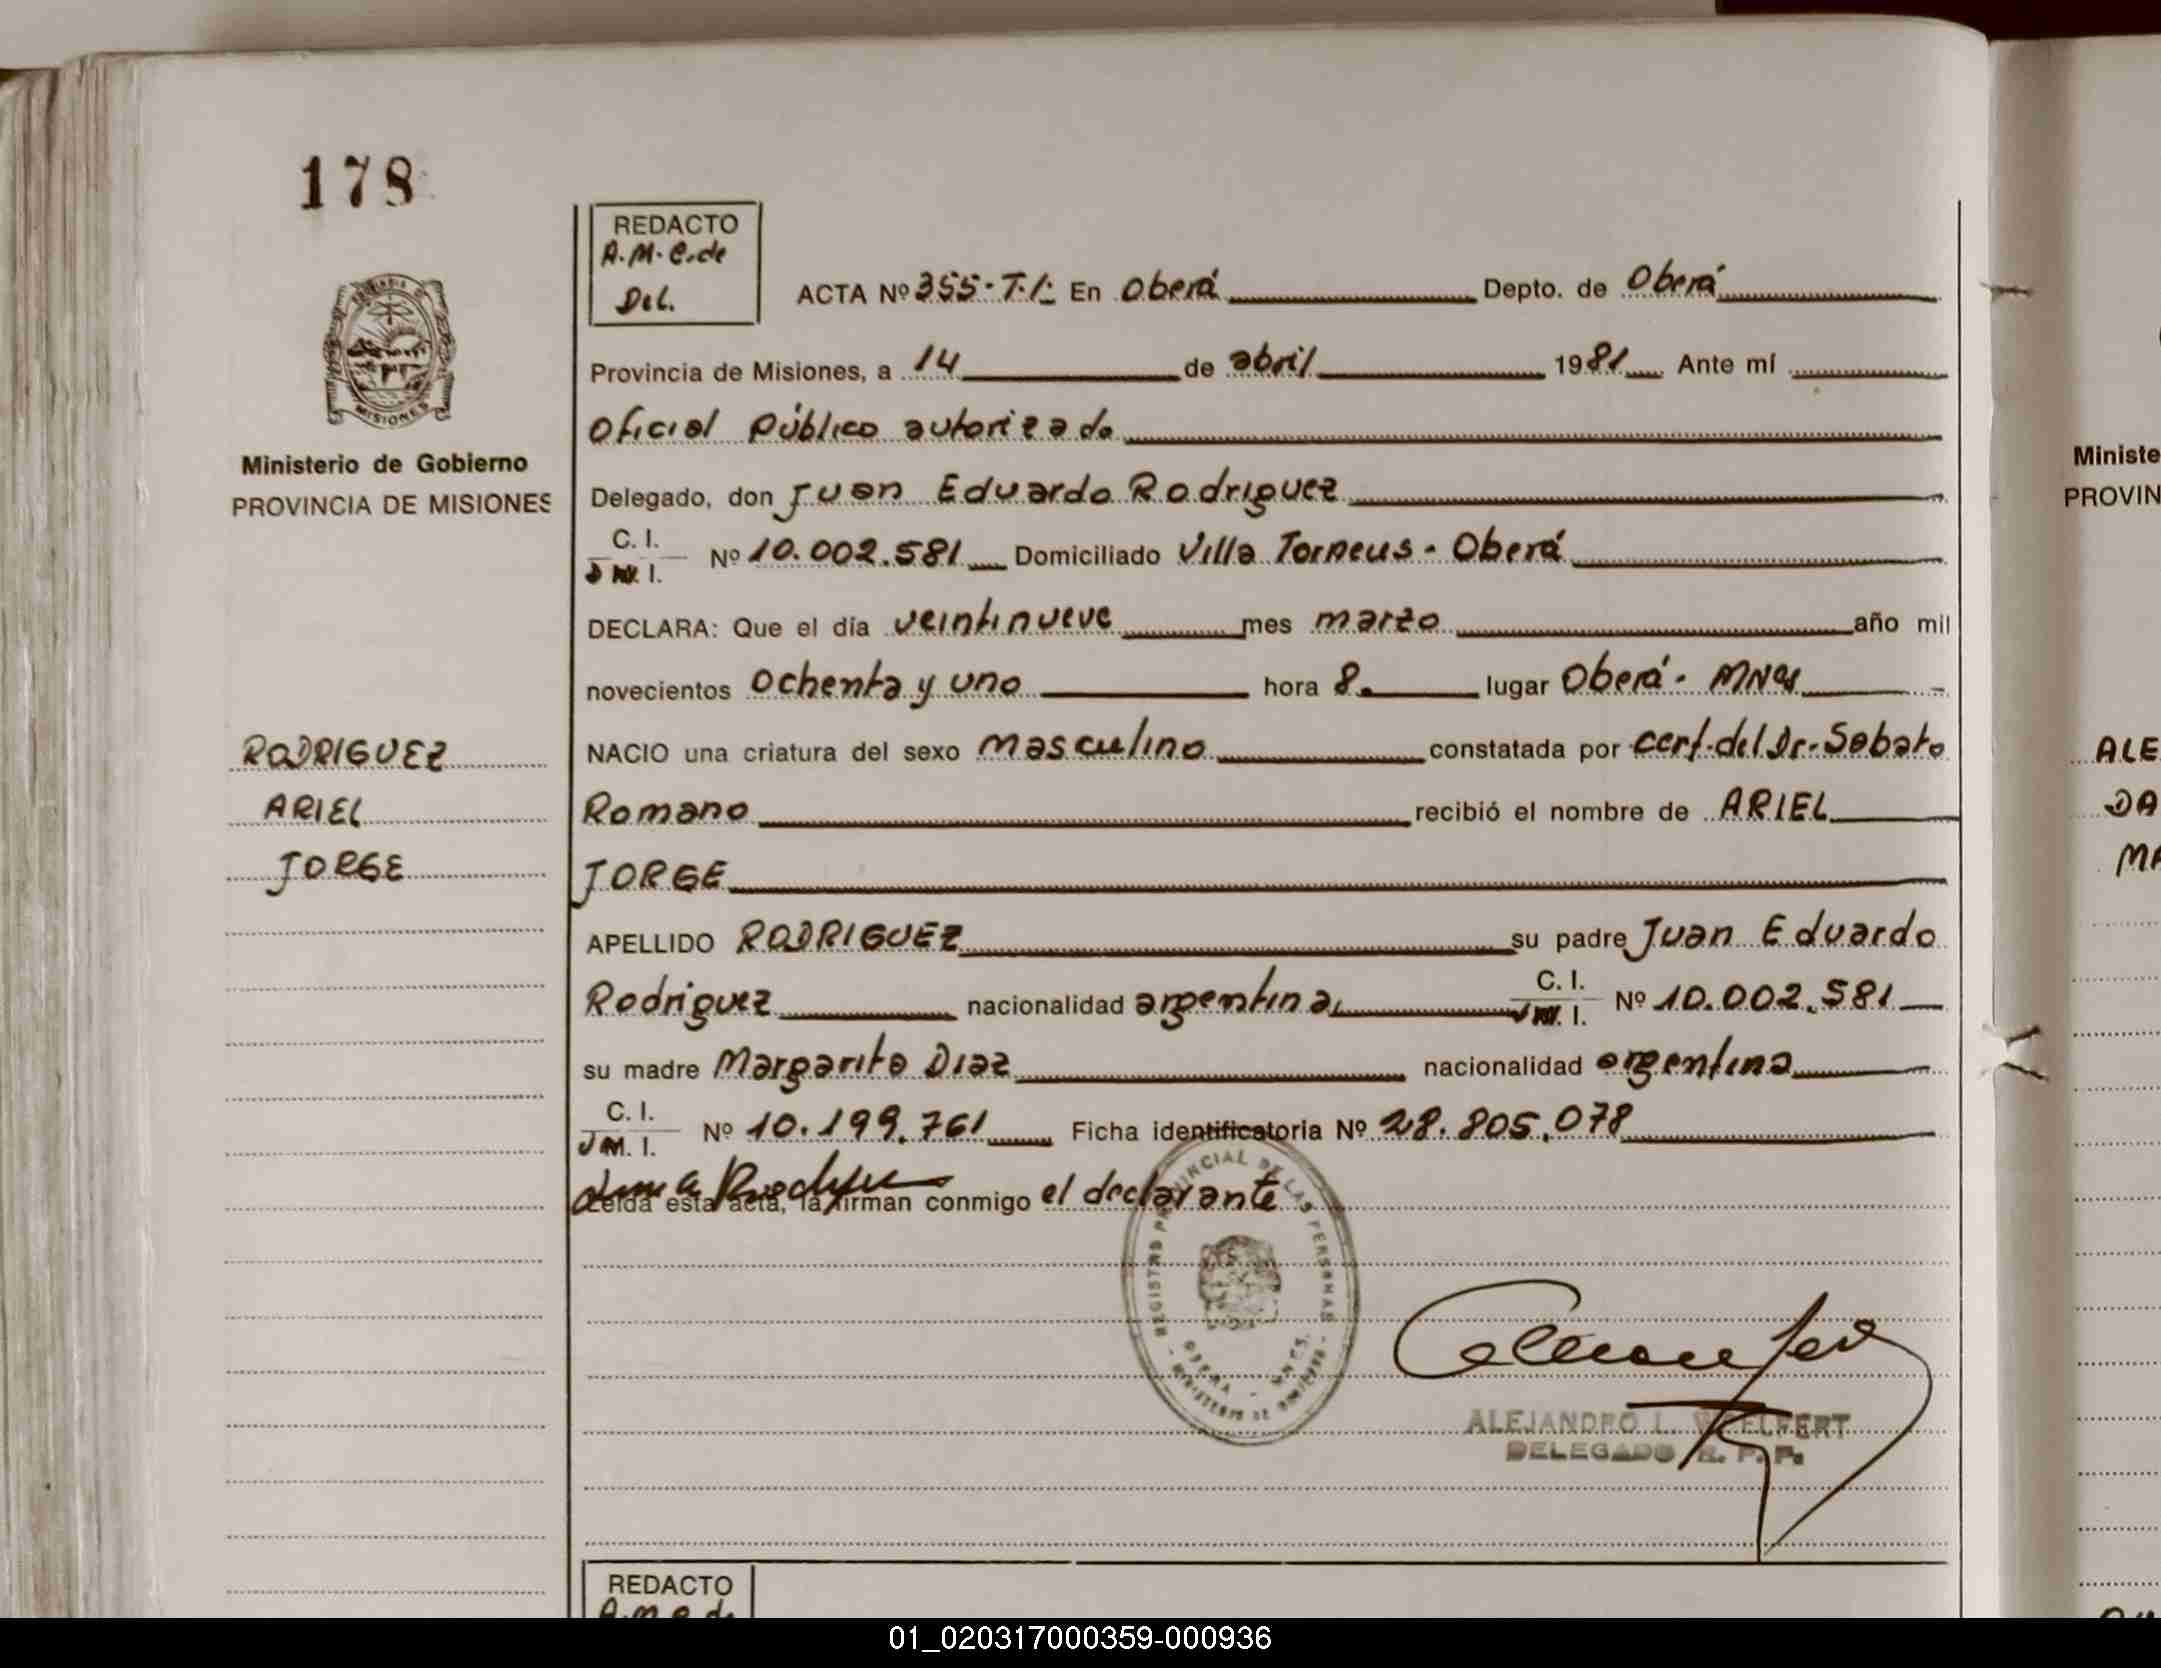 178
REDACTO
A.M.C. de
Del.
ACTA Nº 355-T.I: En Oberá Depto. de Oberá
Provincia de Misiones, a 14 de abril 1981 Ante mí
Oficial Público autorizado
Delegado, don Juan Eduardo Rodriguez
C. I.
Nº 10.002.581 Domiciliado Villa Torneus - Oberá
Ministerio de Gobierno
PROVINCIA DE MISIONES
MISIONES
DECLARA: Que el día veintinueve mes marzo año mil
novecientos ochenta y uno hora 8. lugar Oberá - MNes
NACIO una criatura del sexo masculino constatada por cert. del Dr. Sabato
Romano recibió el nombre de ARIEL
JORGE
RODRIGUEZ
ARIEL
JORGE
APELLIDO RODRIGUEZ su padre Juan Eduardo
Rodriguez nacionalidad argentina, C. I. Nº 10.002.581
su madre Margarita Diaz nacionalidad argentina
C. I. M. I. Nº 10.199.761 Ficha identificatoria Nº 28.805.078
Leida esta acta, la firman conmigo el declarante
REGISTRO PROVINCIAL DE LAS PERSONAS
OBERA - MNES.
- MINISTERIO DE GOBIERNO -
ALEJANDRO L. WELFERT
DELEGADO R. P. P.
REDACTO
Ministe
PROVIN
ALE
DA
MA
01_020317000359-000936